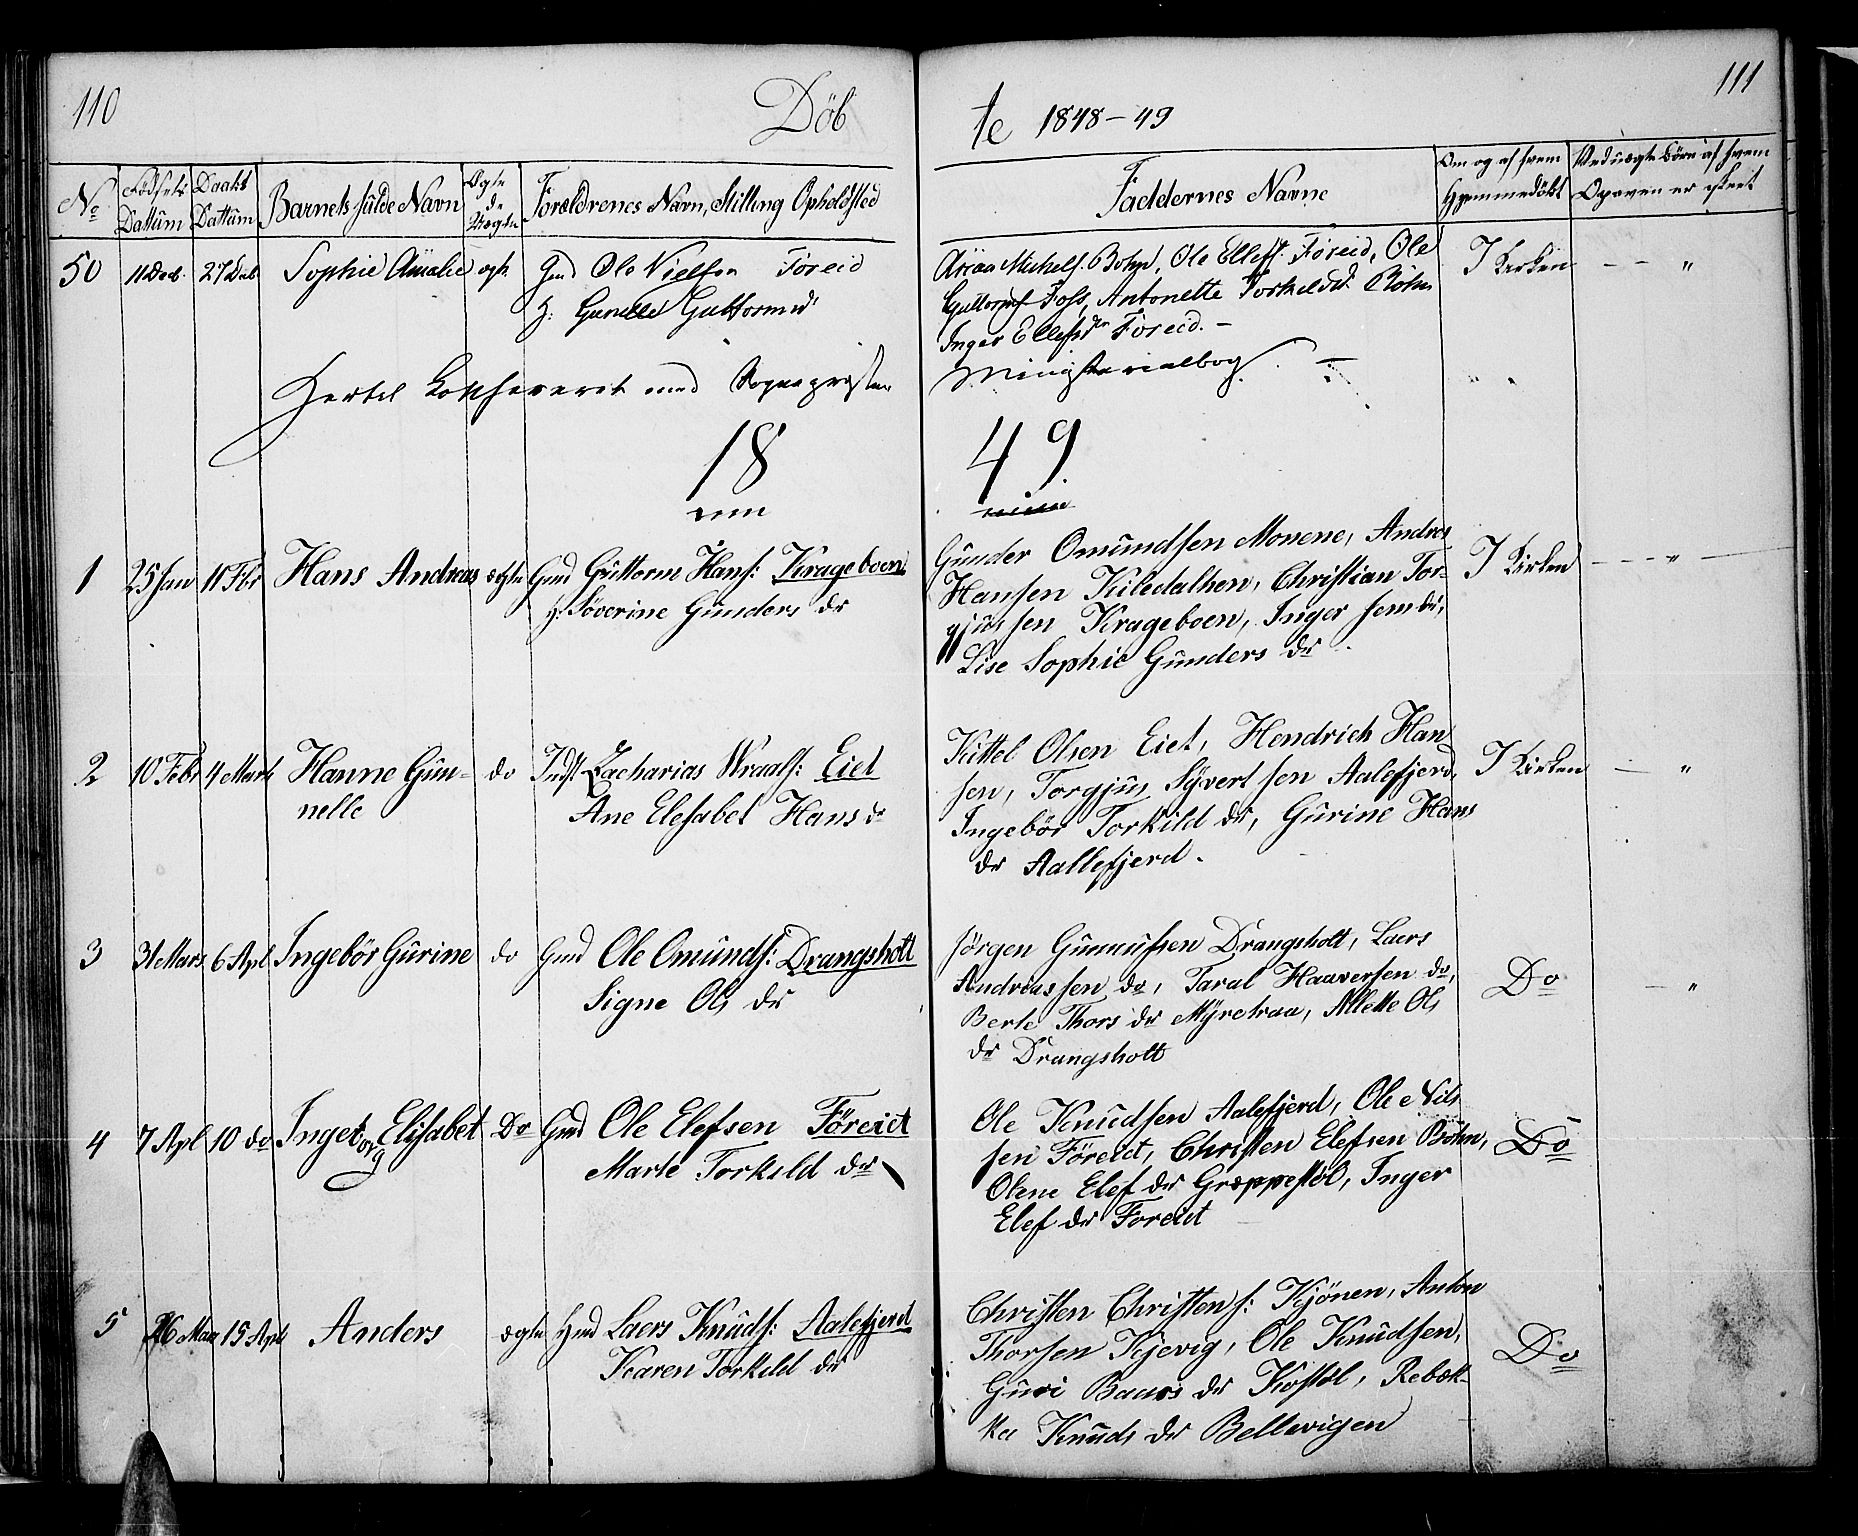 110
Döb
te 1848-49
111
No
Fødsels Dattum
Daabs Dattum
Barnets fulde Navn
Ægte
Forældrenes Navn, Stilling Opholdsted
Faddernes Navne
Om og af hvem Hjemmedöbt
Ved uægte Börn af hvem Opgaven er skeet
50 11 Deb. 27 Deb Sophie Amalie ægte Gmd Ole Nielsen Föreid
H: Gunelle Guttormsd
Michels. Bohn, Ole Ellefs. Föreid, Ole
Guttorms Foss, Antonette Torkelsd Böhn
Inger Ellefsdr Foreid. -
I Kirken - - "
Hertil konfereret med Sognepræsten
Ministerialbog.
18
49
1 25 Jan 11 Fbr Hans Andreas ægte Gmd Guttorm Hans: Krageboen
H: Söverine Gunders dr
Gunder Omundsen Monene, Andres
Hansen Kiledalhen, Christian Tor-
gjus sen Krageboen, Inger sem dr,
Lise Sophie Gunders dr
I Kirken - - - " -
2 10 Febr 4 Marts Hanne Gun-
nelle
do Indst Zacharias Wraals: Eiet
Ane Elesabet Hans dr
Kittel Olsen Eiet, Hendrich Han
sen, Torgjus Syvert sen Aalefjerd,
Ingebör Torkild dr, Gurine Hans
dr Aallefjerd.
I Kirken - "
3 31 Mars 6 Apl Ingebör Gurine do Gmd Ole Omunds: Drangsholt
Signe Ols dr
Jörgen Gunnufsen Drangsholt, Laers
Andreassen do, Taral Haaversen do,
Berte Thors dr Myretraa, Allette Ols
dr Drangsholt
Do - "
4 7 Apl 10 do Ingeborg Elisabet Do Gmd Ole Elefsen Föreidt
Marte Torkild dr
Ole Knudsen Aalefjerd, Ole Nils
sen Föreidt, Christen Elefsen Böhn,
Olene Elef dr Græppestöl, Inger
Elef dr Foreidt
Do
5 26 Mars 15 Apl Anders ægte Laers Knuds: Aalefjerd
Karen Torkild dr
Christen Christens: Kjönen, Anton
Thorsen Kjevig, Ole Knudsen,
Guri Baars dr Kostöl, Rebæk-
ka Knuds dr Bellevigen
Do